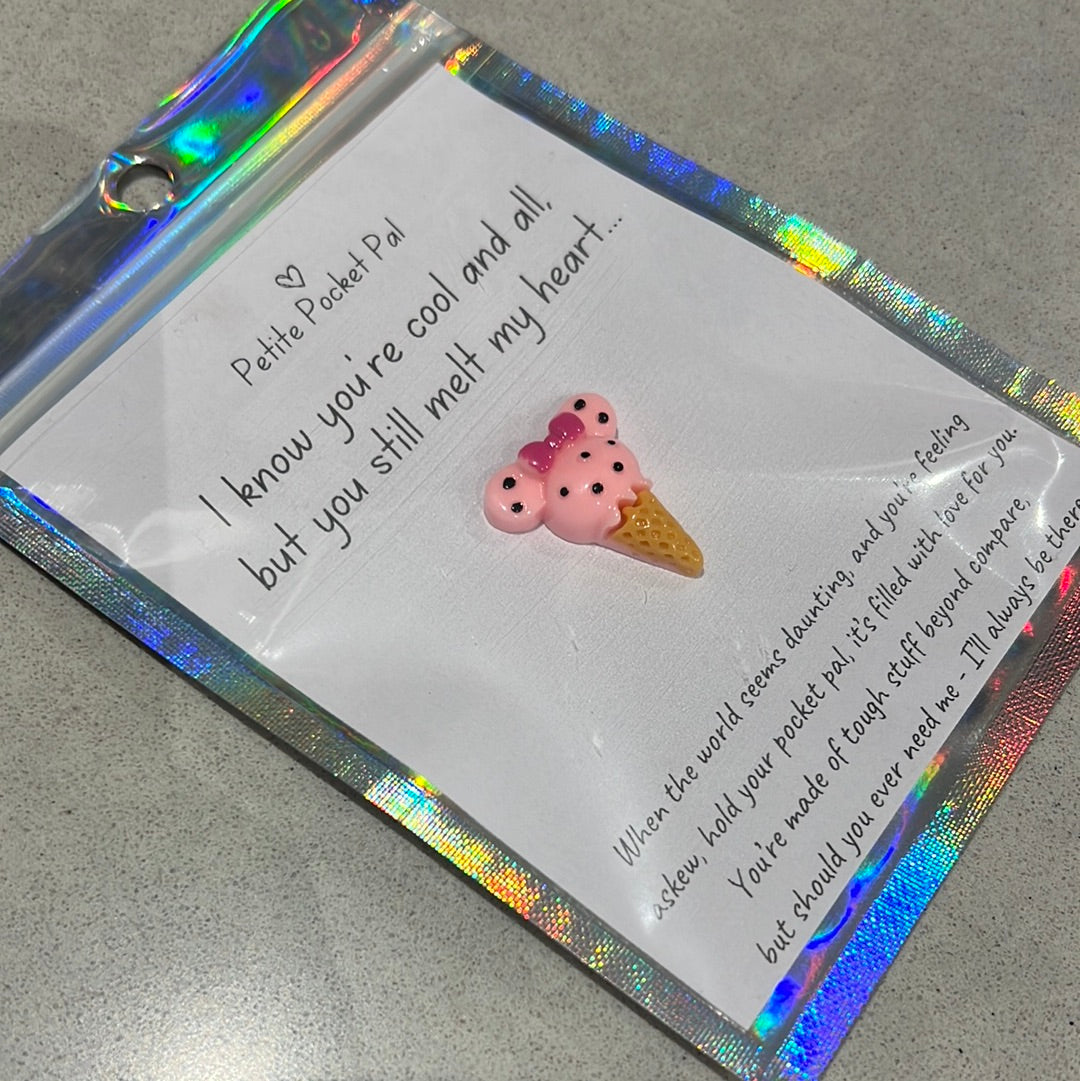 Petite Pocket Pal
I know you're cool and all,
but you still melt my heart...
When the world seems daunting, and you're feeling
askew, hold your pocket pal, it's filled with love for you.
You're made of tough stuff beyond compare,
but should you ever need me - I'll always be there